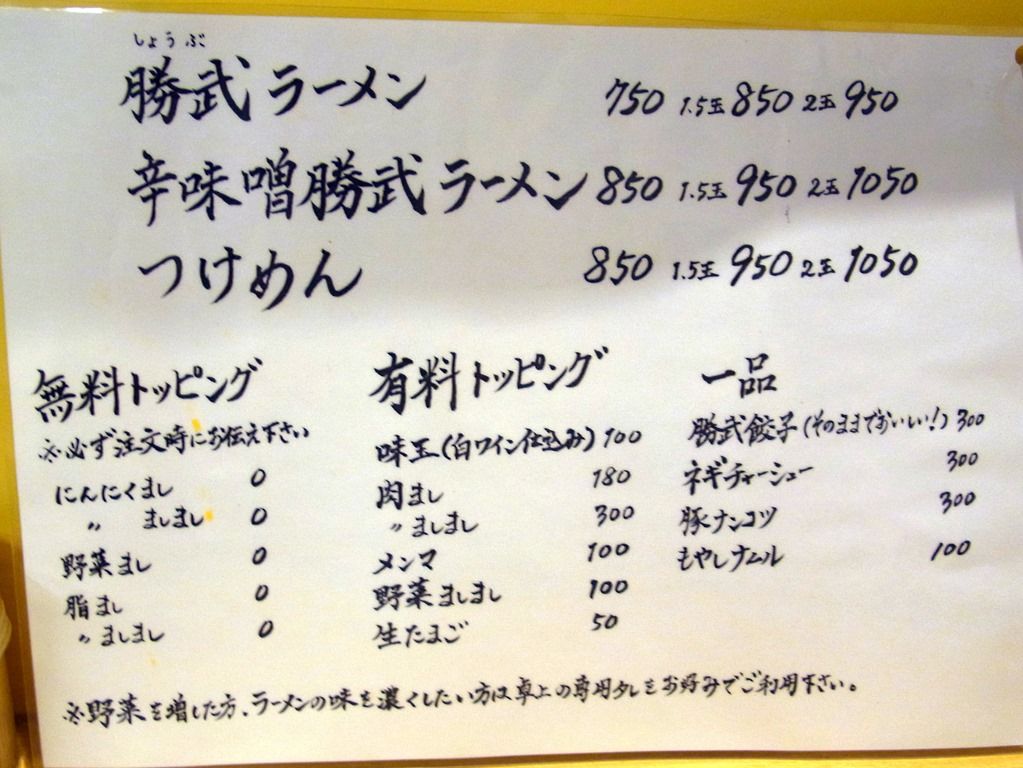 しょうぶ
勝武ラーメン 750 1.5玉 850 2玉 950
辛味噌勝武ラーメン 850 1.5玉 950 2玉 1050
つけめん 850 1.5玉 950 2玉 1050
無料トッピング
※必ず注文時にお伝え下さい
にんにくまし 0
〃 ましまし 0
野菜まし 0
脂まし 0
〃ましまし 0
有料トッピング
味玉(白ワイン仕込み) 100
肉まし 180
〃ましまし 300
メンマ 100
野菜ましまし 100
生たまご 50
一品
勝武餃子(そのままでおいしい!) 300
ネギチャーシュー 300
豚ナンコツ 300
もやしナムル 100
※野菜を増した方、ラーメンの味を濃くしたい方は卓上の専用タレをお好みでご利用下さい。